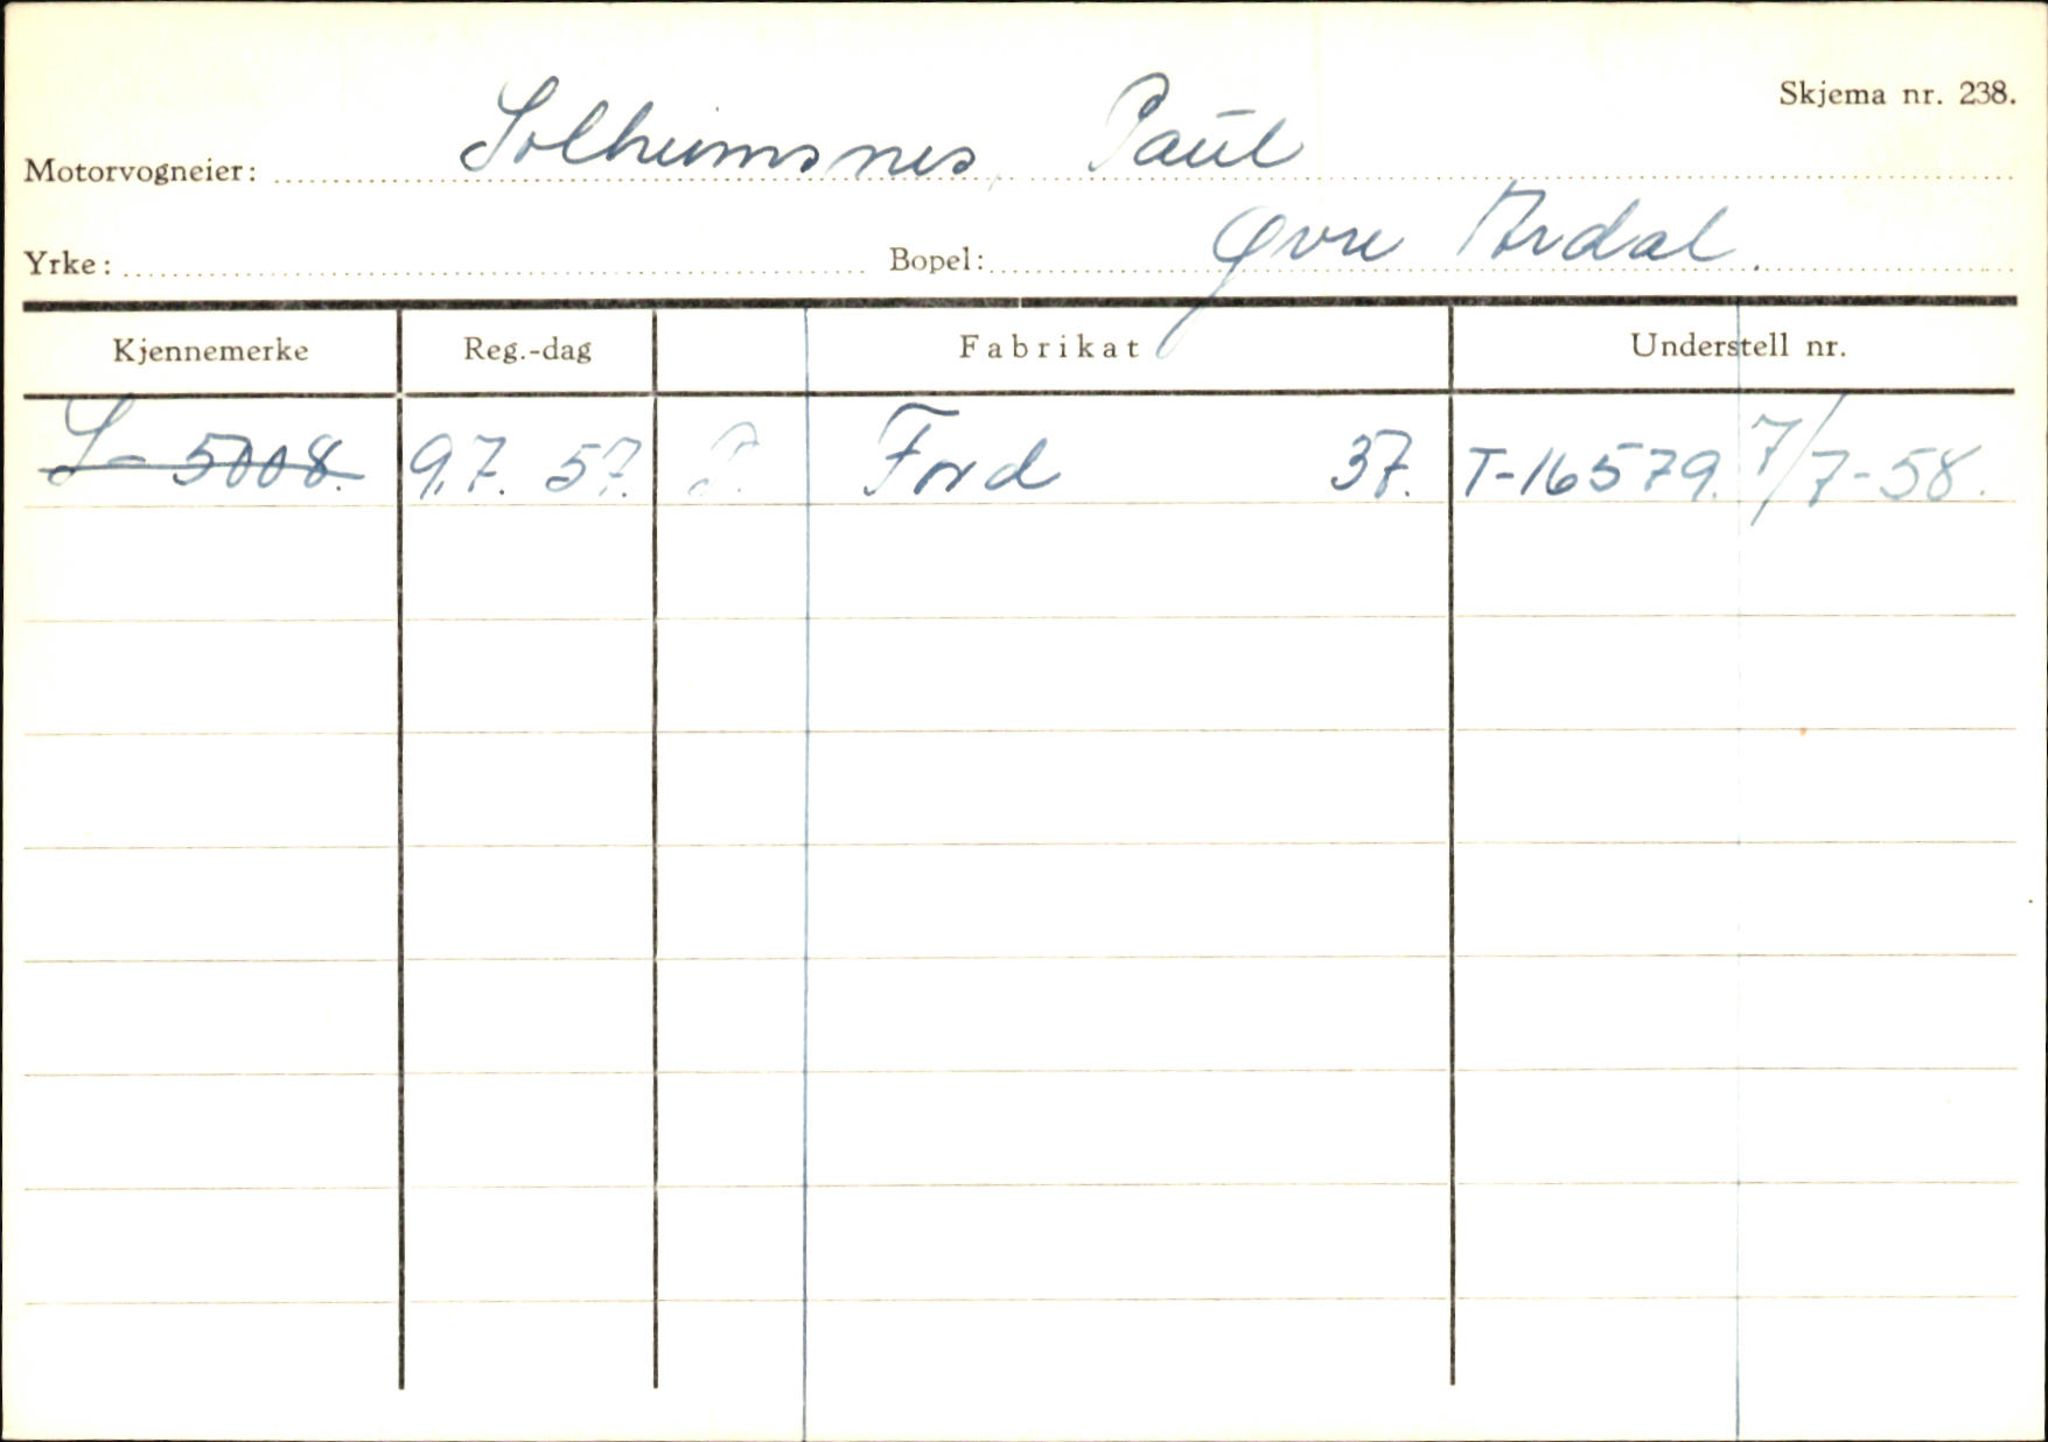 Skjema nr. 238.
Motorvogneier: Solheimsnes, Paul
Yrke: Bopel: Øvre Årdal.
Kjennemerke Reg.-dag Fabrikat Understell nr.
S-5008. 9.7. 57. P. Ford 37. T-16579. 7/7-58.